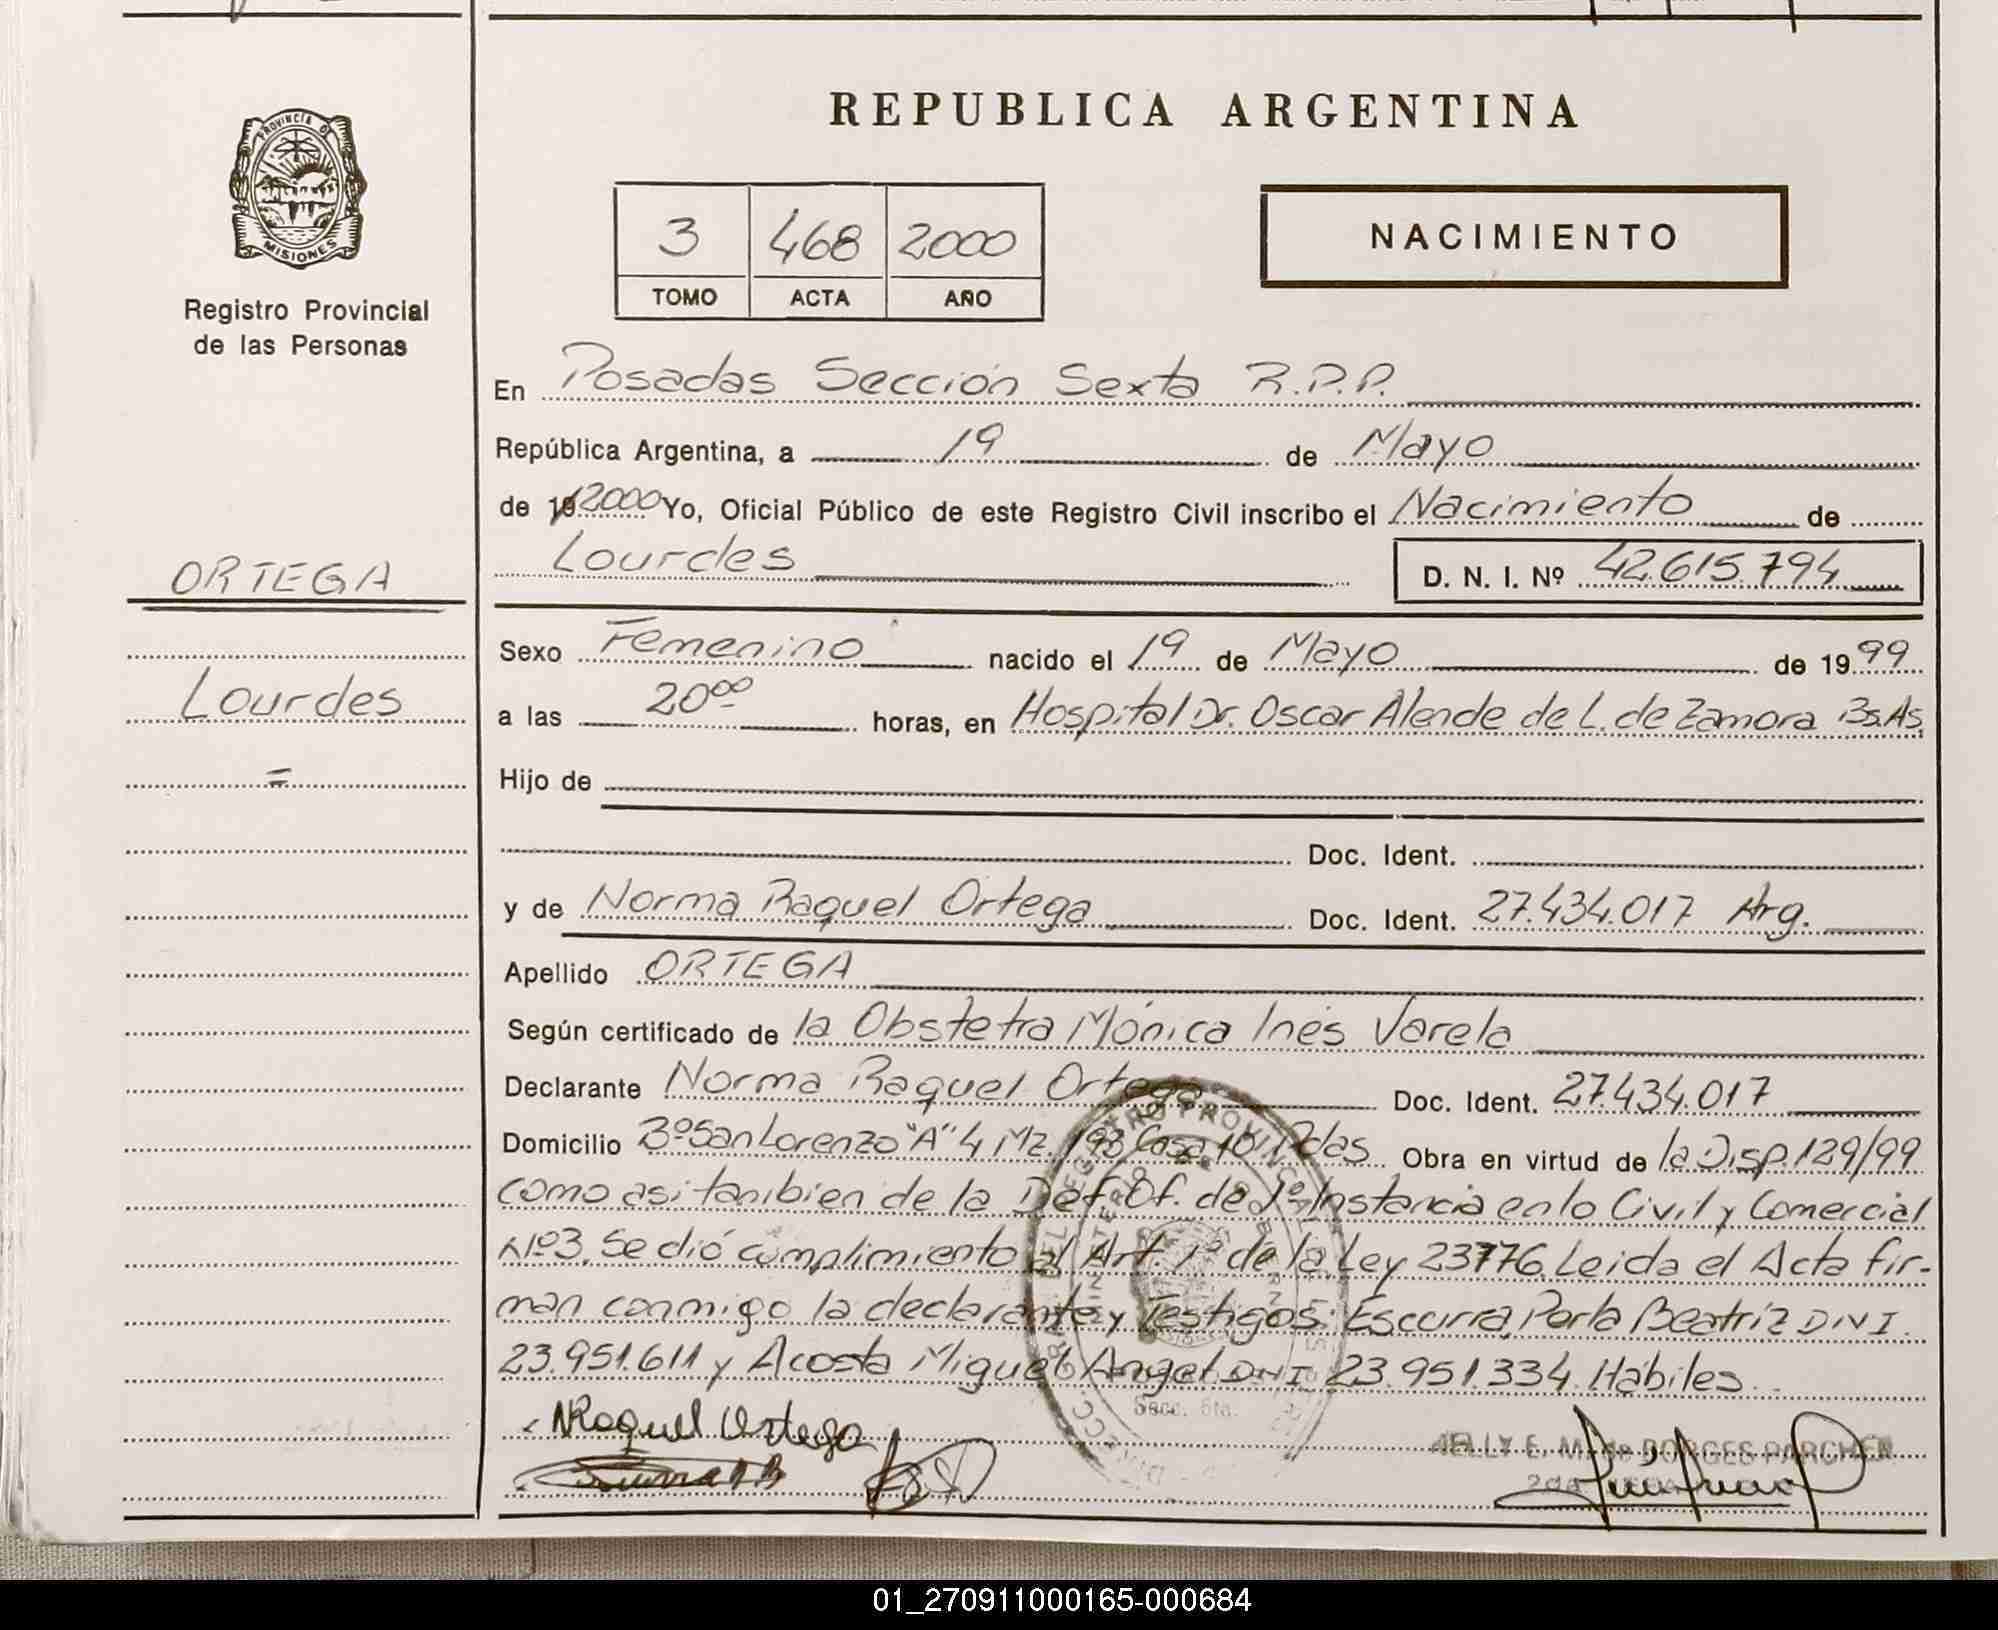 REPUBLICA ARGENTINA
PROVINCIA DE
MISIONES
Registro Provincial
de las Personas
3 468 2000
TOMO ACTA AÑO
NACIMIENTO
En Posadas Sección Sexta R.P.P.
República Argentina, a 19 de Mayo
de 19 2000 Yo, Oficial Público de este Registro Civil inscribo el Nacimiento de
Lourdes D. N. I. Nº 42.615.794
ORTEGA
Lourdes
=
Sexo Femenino nacido el 19 de Mayo de 1999
a las 20⁰⁰ horas, en Hospital Dr. Oscar Alende de L. de Zamora Bs.As.
Hijo de
Doc. Ident.
y de Norma Raquel Ortega Doc. Ident. 27.434.017 Arg.
Apellido ORTEGA
Según certificado de la Obstetra Mónica Inés Varela
Declarante Norma Raquel Ortega Doc. Ident. 27.434.017
Domicilio Bº San Lorenzo "A" 4 Mz. 193 Casa 10 Pdas Obra en virtud de la Disp. 129/99
como asi tambien de la Def. Of. de 1º Instancia en lo Civil y Comercial
Nº3. Se dió cumplimiento al Art. 1º de la Ley 23776. Leida el Acta fir-
man conmigo la declarante y Testigos: Escurra, Perla Beatriz DNI.
23.951.611 y Acosta Miguel Angel DNI 23.951.334. Hábiles.
NRaquel Ortega
NELLY E. M. de BORGES PARCHEN
Secc. 6ta.
01_270911000165-000684